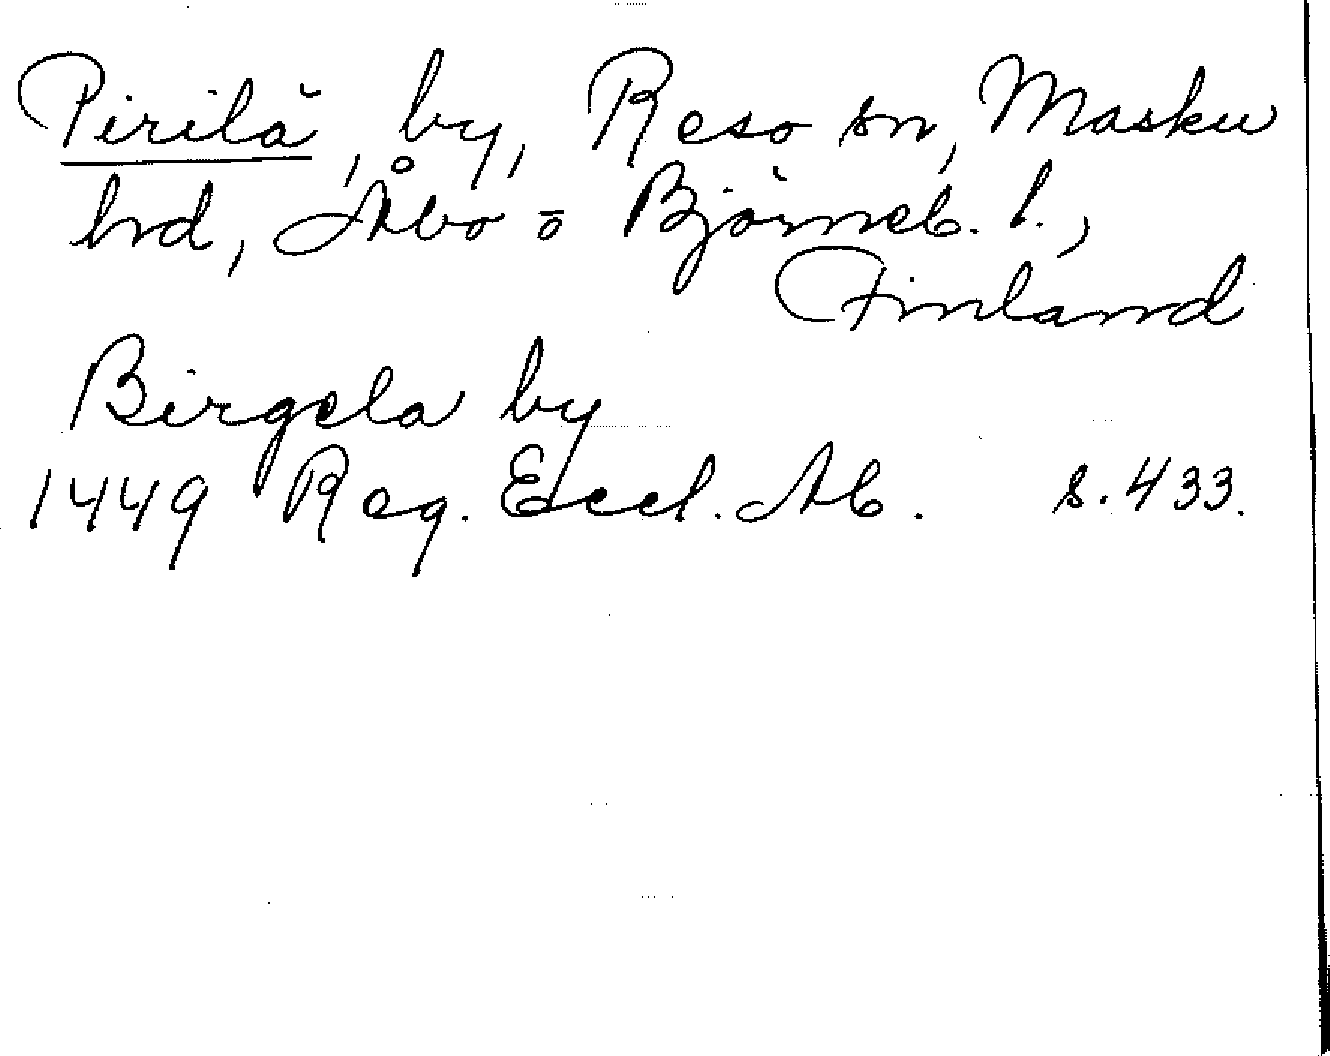 Pirilä, by, Reso sn, Masku
hd, Åbo o Björneb. l.,
Finland
Birgela by
1449 Reg. Eccl. Ab. s. 433.